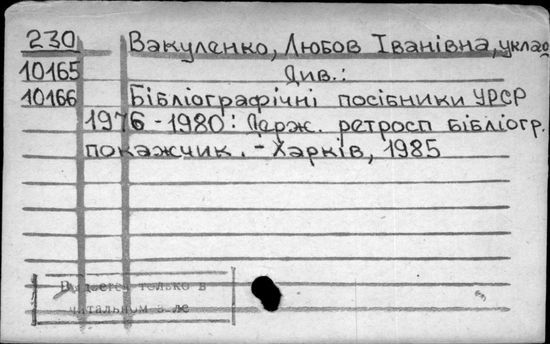 230 Вакуленко, Любов Іванівна, уклад
10165 Див.:
10166 Бібліографічні посібники УРСР
1976-1980: Держ. ретросп бібліогр.
покажчик. - Харків, 1985
Выдается только в
читальном зале